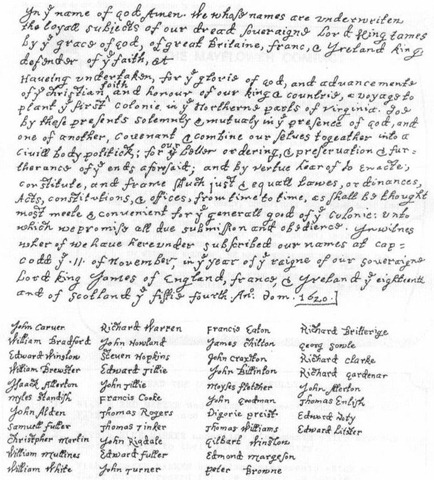 Yn yͤ name of god Amen. We whose names are underwriten
the loyall subjects of our dread soveraigne Lord King James
by yͤ grace of god, of great Britaine, franc, & Yreland king,
defender of yͤ faith, &c
Haveing undertaken, for yͤ glorie of god, and advancemente
of yͤ christian faith and honour of our king & countrie, a voyage to
plant yͤ first colonie in yͤ Northerne parts of Virginia. Doe
by these presents solemnly & mutualy in yͤ presence of god, and
one of another, covenant & combine our selves togeather into a
Civill body politick; for our better ordering, & preservation & fur-
therance of yͤ ends aforesaid; and by vertue hearof to enacte,
constitute, and frame shuch just & equall Lawes, ordinances,
Acts, constitutions, & offices, from time to time, as shall be thought
most meete & convenient for yͤ generall good of yͤ Colonie: unto
which we promise all due submission and obedience. Yn witnes
wherof we have hereunder subscribed our names at Cap=
Codd yͤ .11. of November, in yͤ year of yͤ raigne of our soveraigne
Lord King James of England, franc, & Yreland yͤ eighteenth
and of Scotland yͤ fiftie fourth. An°. Dom. 1620.
John Carver Richard Warren Francis Eaton Richard Britterige
William Bradford John Howland James Chilton Georg Soule
Edward Winslow Steven Hopkins John Craxton Richard Clarke
William Brewster Edward Tillie John Billinton Richard Gardenar
Isaack Allerton John Tillie Moyses Fletcher John Allerton
Myles Standish Francis Cooke John Goodman Thomas Enlish
John Alden Thomas Rogers Digerie Preist Edward Doty
Samuell Fuller Thomas Tinker Thomas Williams Edward Litster
Christopher Martin John Rigdale Gilbart Winslow
William Mullines Edward Fuller Edmond Margeson
William White John Turner Peter Browne